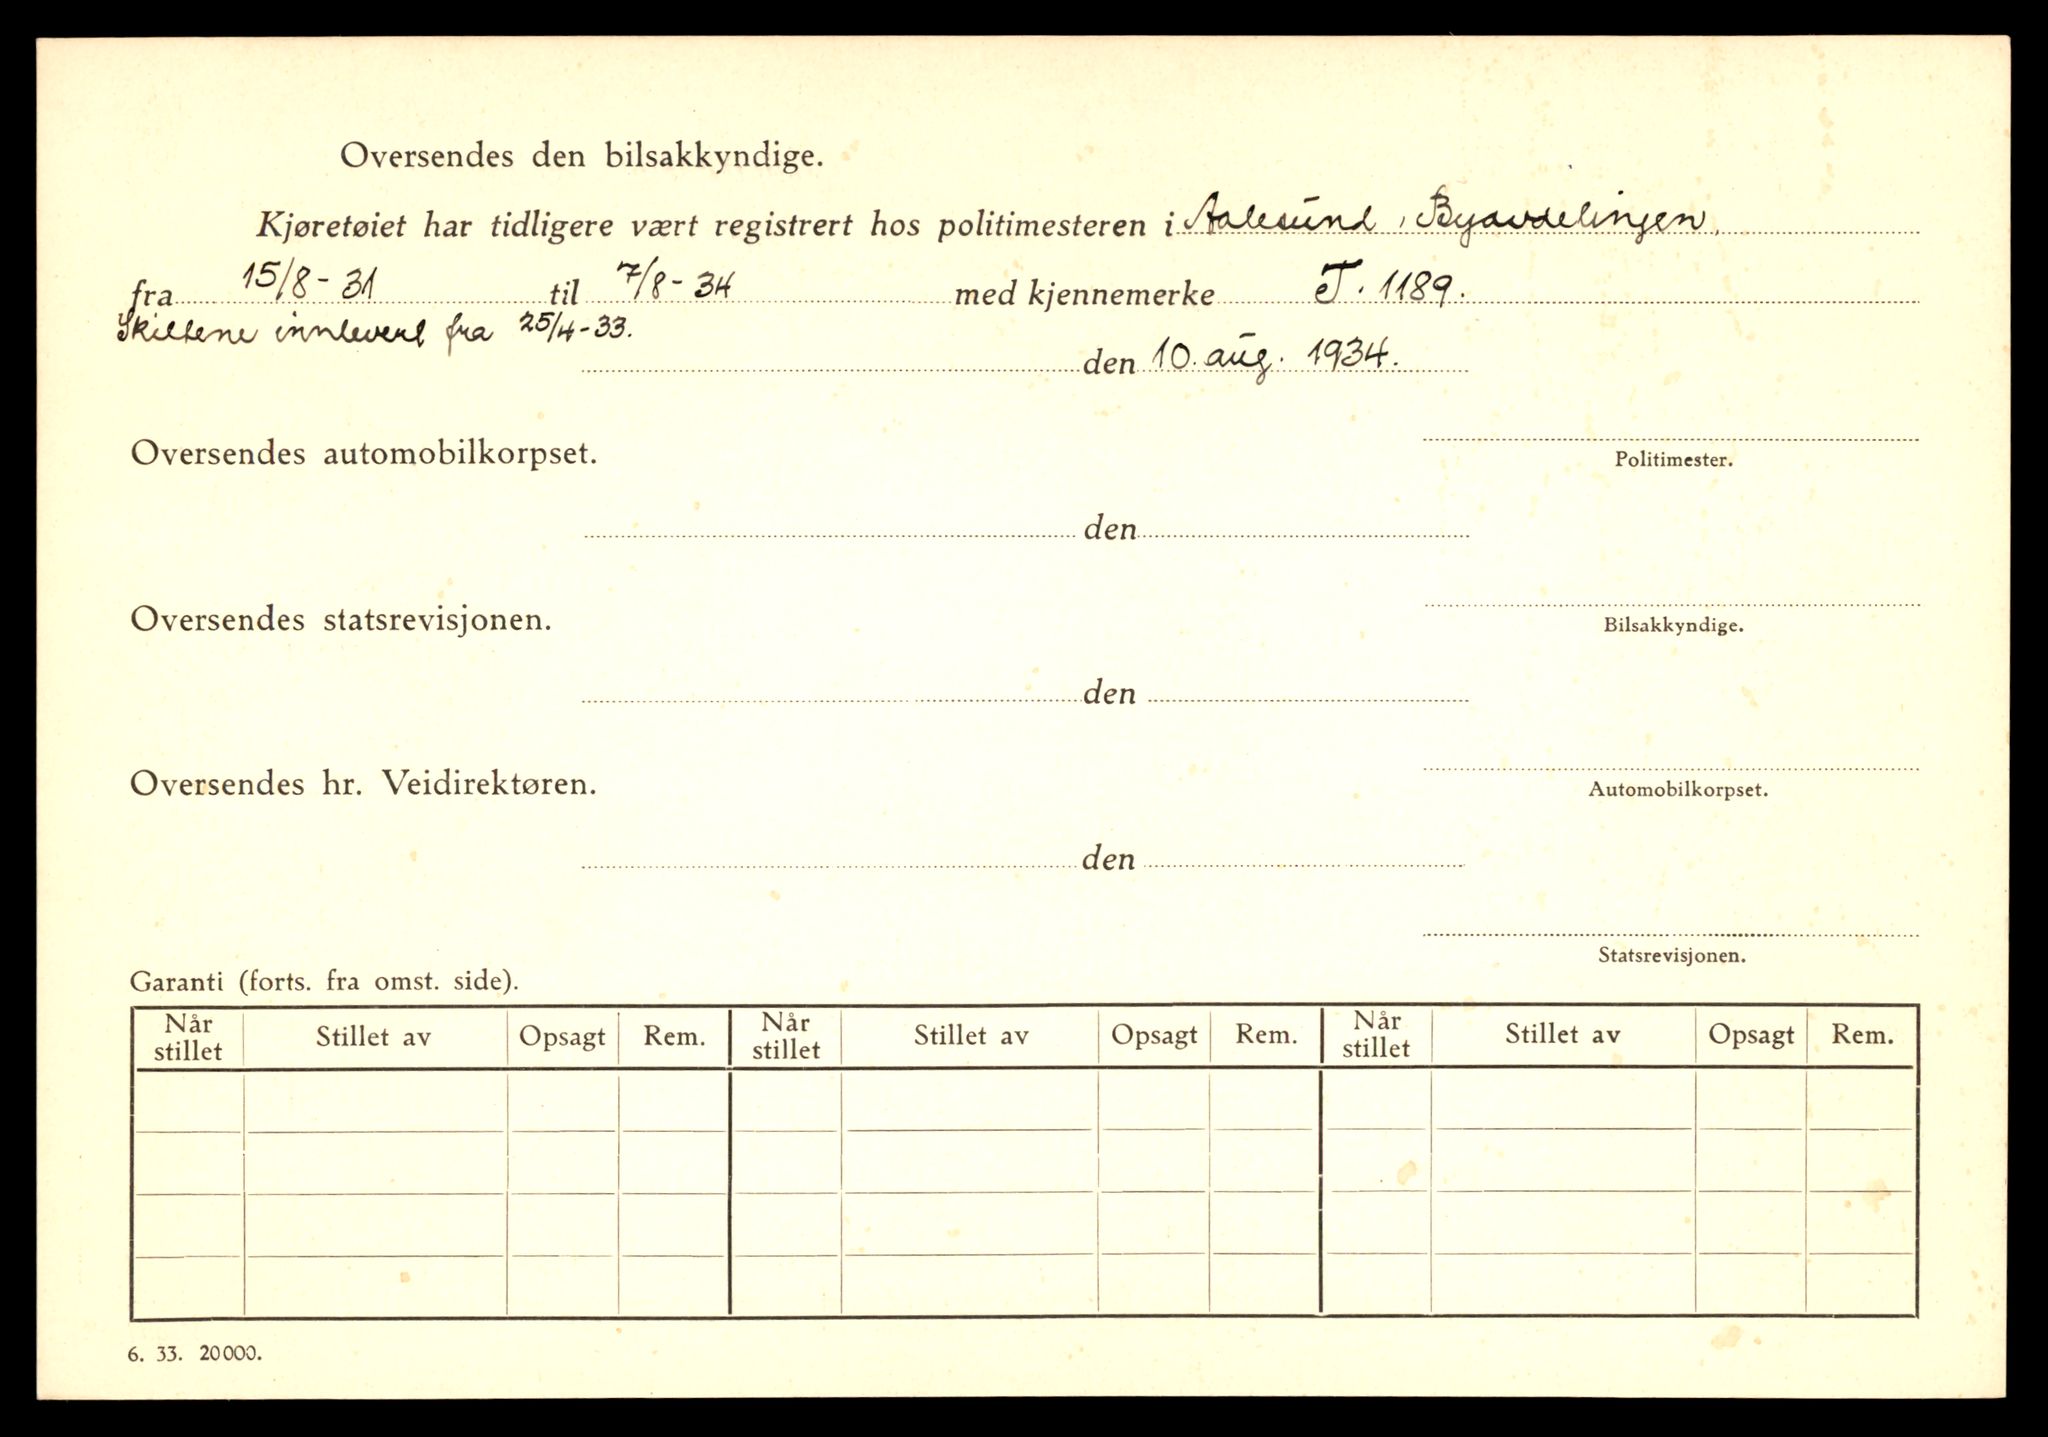 Oversendes den bilsakkyndige.
Kjøretøiet har tidligere vært registrert hos politimesteren i Aalesund, Byavdelingen.
fra 15/8-31 til 7/8-34 med kjennemerke T. 1189.
Skiltene innlevert fra 25/4-33.
den 10. aug. 1934.
Oversendes automobilkorpset.
Politimester.
den
Oversendes statsrevisjonen.
Bilsakkyndige.
den
Oversendes hr. Veidirektøren.
Automobilkorpset.
den
Statsrevisjonen.
Garanti (forts. fra omst. side).
Når stillet Stillet av Opsagt Rem. Når stillet Stillet av Opsagt Rem. Når stillet Stillet av Opsagt Rem.
6. 33. 20000.